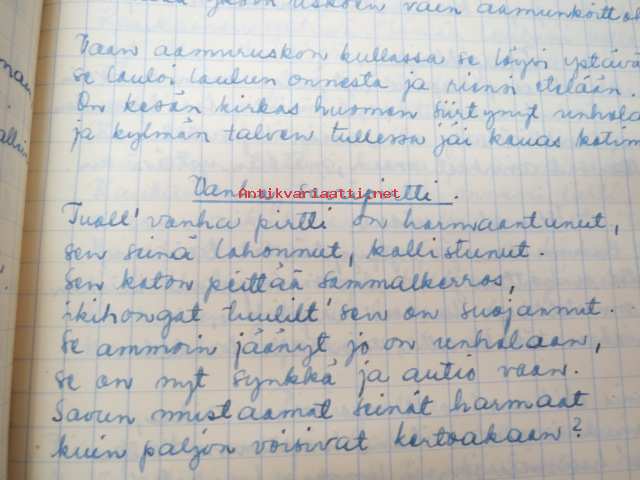 jäden uskoen vain aamunkoitto
Vaan aamuruskon kullassa se löysi ystävä
se lauloi laulun onnesta ja riensi etelään.
On kesän kirkas huomen siirtynyt unhola
ja kylmän talven tullessa jäi kauas kotim
Vanha savupirtti.
Antikvariaatti.net
Tuoll' vanha pirtti on harmaantunut,
sen seinä lahonnut, kallistunut.
Sen katon peittää sammalkerros,
ikihongat tuulilt' sen on suojannut.
Se ammoin jäänyt jo on unholaan,
se on nyt synkkä ja autio vaan.
Savun mustaamat seinät harmaat
kuin paljon voisivat kertoakaan?